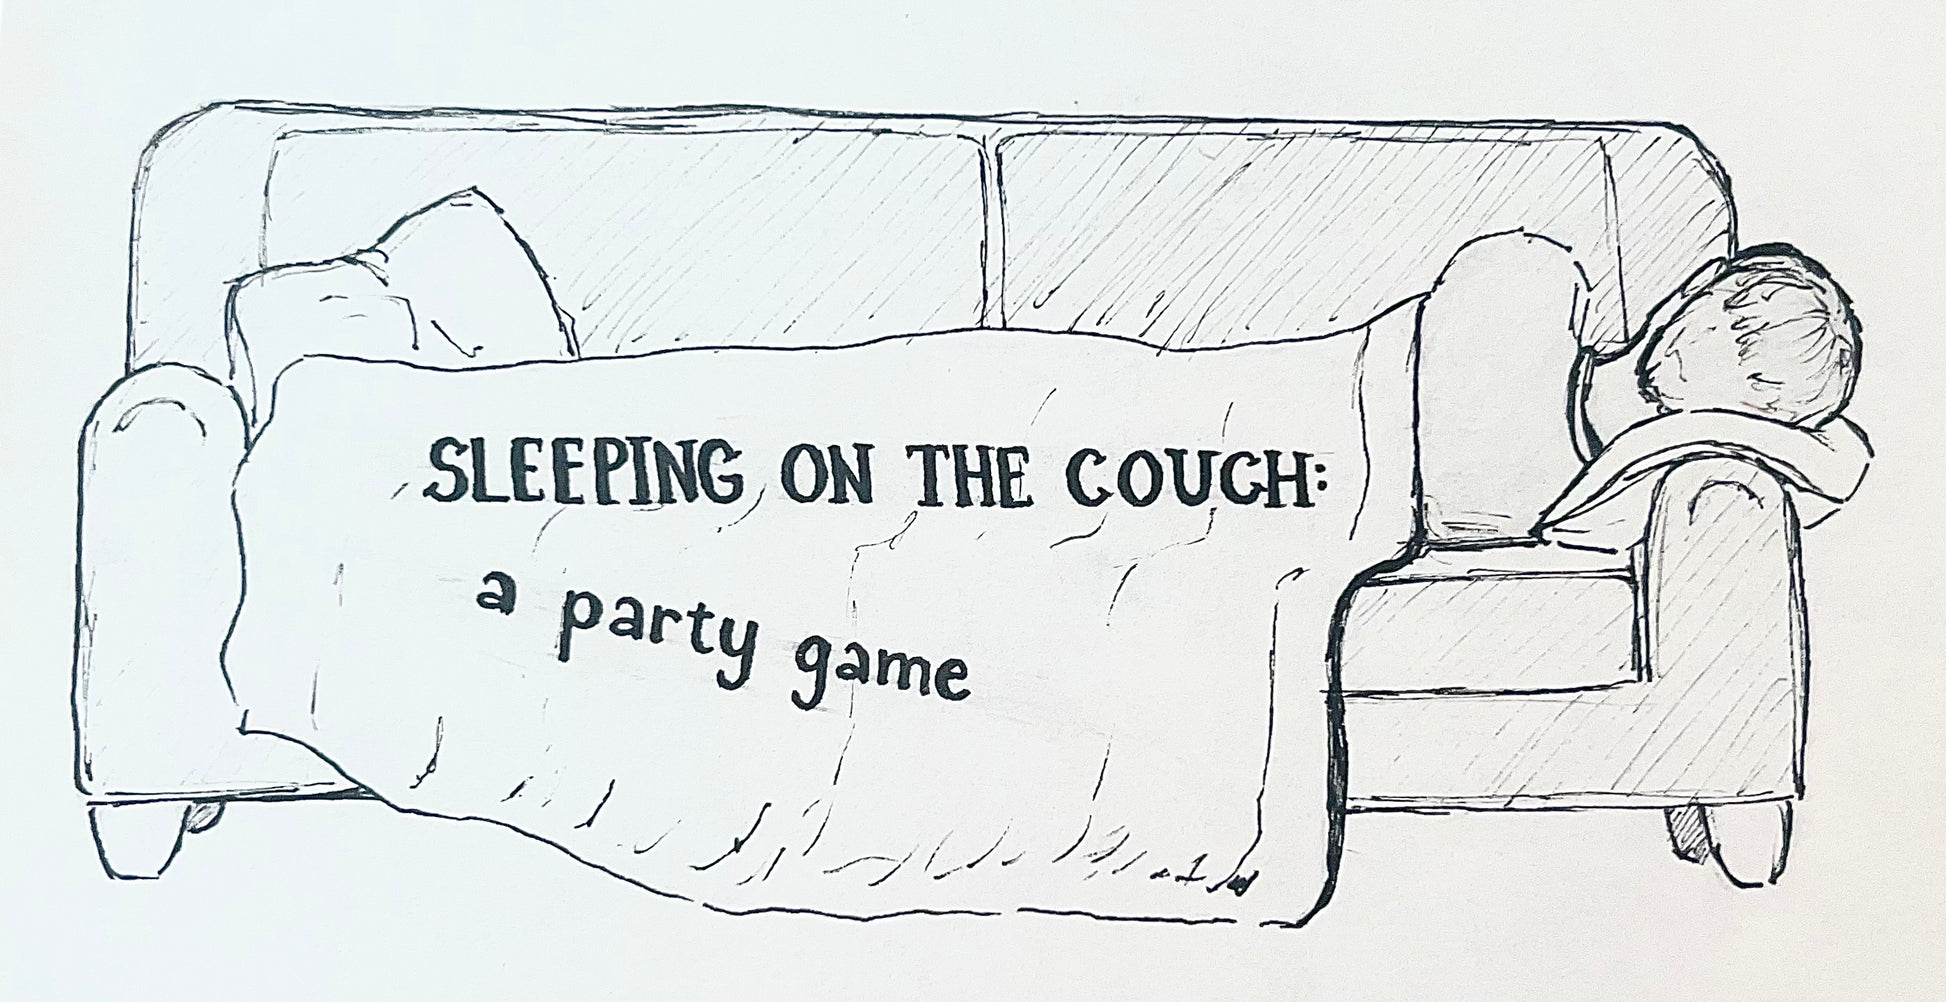 SLEEPING ON THE COUCH:
a party game